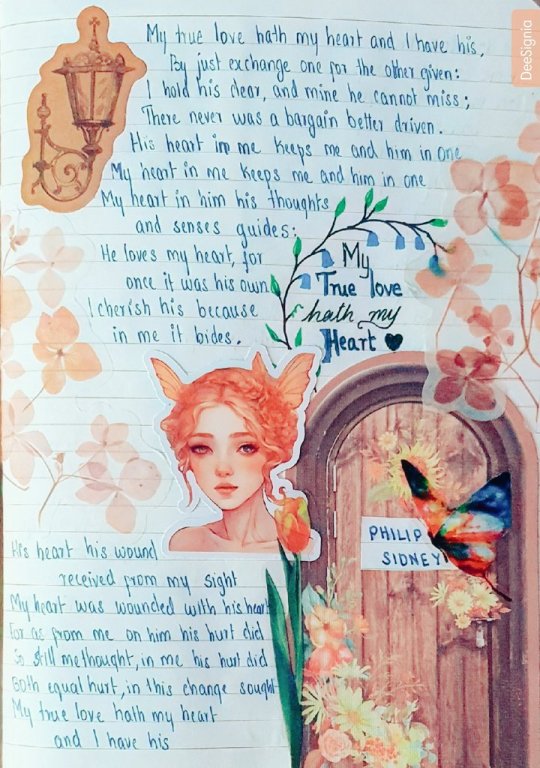 My true love hath my heart and I have his,
By just exchange one for the other given:
I hold his dear, and mine he cannot miss;
There never was a bargain better driven.
His heart in me keeps me and him in one
My heart in me keeps me and him in one
My heart in him his thoughts
and senses guides:
He loves my heart, for
once it was his own
I cherish his because
in me it bides.
My
True love
hath my
Heart
PHILIP
SIDNEY
His heart his wound
received from my sight
My heart was wounded with his heart
For as from me on him his hurt did
So still methought, in me his hurt did
Both equal hurt, in this change sought
My true love hath my heart
and I have his
DeeSignia